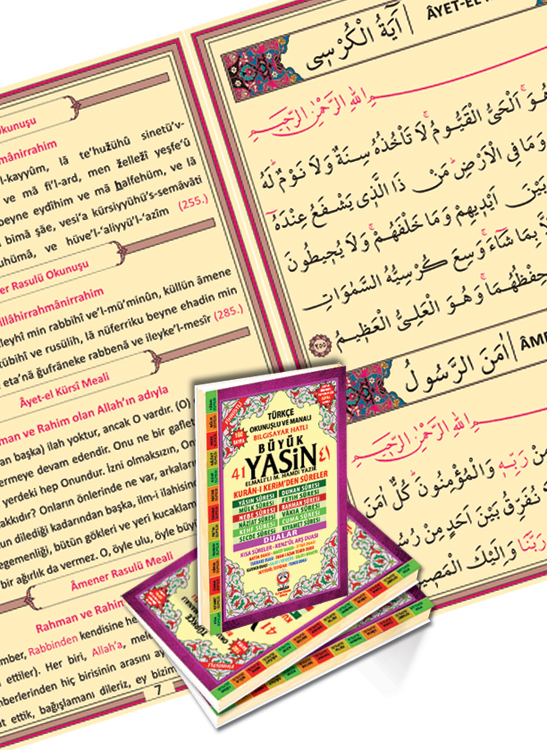 Okunuşu
mânirrahim
l-kayyûm, lâ te'huzühü sinetü'v-
ve mâ fi'l-ard, men zellezî yeşfe'û
beyne eydîhim ve mâ halfehüm, ve lâ
bimâ şâe, vesi'a kürsiyyühü's-semâvâti
uhümâ, ve hüve'l-'aliyyü'l-'azîm (255.)
er Rasulü Okunuşu
illâhirrahmânirrahim
leyhi min rabbihî ve'l-mü'minûn, küllün âmene
tübihî ve rusülih, lâ nüferriku beyne ehadin min
eta'nâ ğufrâneke rabbenâ ve ileyke'l-mesîr (285.)
Âyet-el Kürsî Meali
man ve Rahim olan Allah'ın adıyla
başka) ilah yoktur, ancak O vardır. (O)
ermeye devam edendir. Onu ne bir gaflet
yerdeki hep Onundur. İzni olmaksızın, On
akkır? Onların önlerinde ne var, arkaların
un dilediği kadarından başka, ilm-i ilahisinde
egemenliği, bütün gökleri ve yeri kucaklam
bir ağırlık da vermez. O, öyle ulu, öyle büyü
Âmener Rasulü Meali
Rahman ve Rahim
mber, Rabbinden kendisine
ettiler). Her biri, Allah'a, mele
mberlerinden hiç birisinin arasını ay
at ettik, bağışlamanı dileriz, ey bizim
7
آيَةُ الْكُرْسِى
ÂYET-EL
اللهِ الرَّحْمٰنِ الرَّحِيمِ
هُوَ اَلْحَىُّ الْقَيُّومُ لَا تَأْخُذُهُ سِنَةٌ وَلَا نَوْمٌ لَهُ
وَمَا فِى الْاَرْضِ مَنْ ذَا الَّذِى يَشْفَعُ عِنْدَهُ
بَيْنَ اَيْدِيهِمْ وَمَا خَلْفَهُمْ وَلَا يُحِيطُونَ
اِلَّا بِمَا شَاءَ وَسِعَ كُرْسِيُّهُ السَّمٰوَاتِ
حِفْظُهُمَا وَهُوَ الْعَلِىُّ الْعَظِيمُ ٢٥٥
اٰمَنَ الرَّسُولُ
ÂME
اللهِ الرَّحْمٰنِ الرَّحِيمِ
مِنْ رَبِّهِ وَالْمُؤْمِنُونَ كُلٌّ اٰمَنَ
نُفَرِّقُ بَيْنَ اَحَدٍ مِنْ رُسُ
رَبَّنَا وَاِلَيْكَ الْمَصِيرُ
TÜRKÇE
OKUNUŞLU VE MANALI
BİLGİSAYAR HATLI
BÜYÜK
41 YASİN ٤١
ELMALI'LI M. HAMDİ YAZIR
KURÂN-I KERİM'DEN SÛRELER
YÂSİN SÛRESİ DUHAN SÛRESİ
MÜLK SÛRESİ FETİH SÛRESİ
NEBE SÛRESİ RAHMAN SÛRESİ
NAZİAT SÛRESİ VAKIA SÛRESİ
KEHF SÛRESİ CUMA SÛRESİ
SECDE SÛRESİ KIYAMET SÛRESİ
DUALAR
KISA SÛRELER - KENZ'ÜL ARŞ DUASI